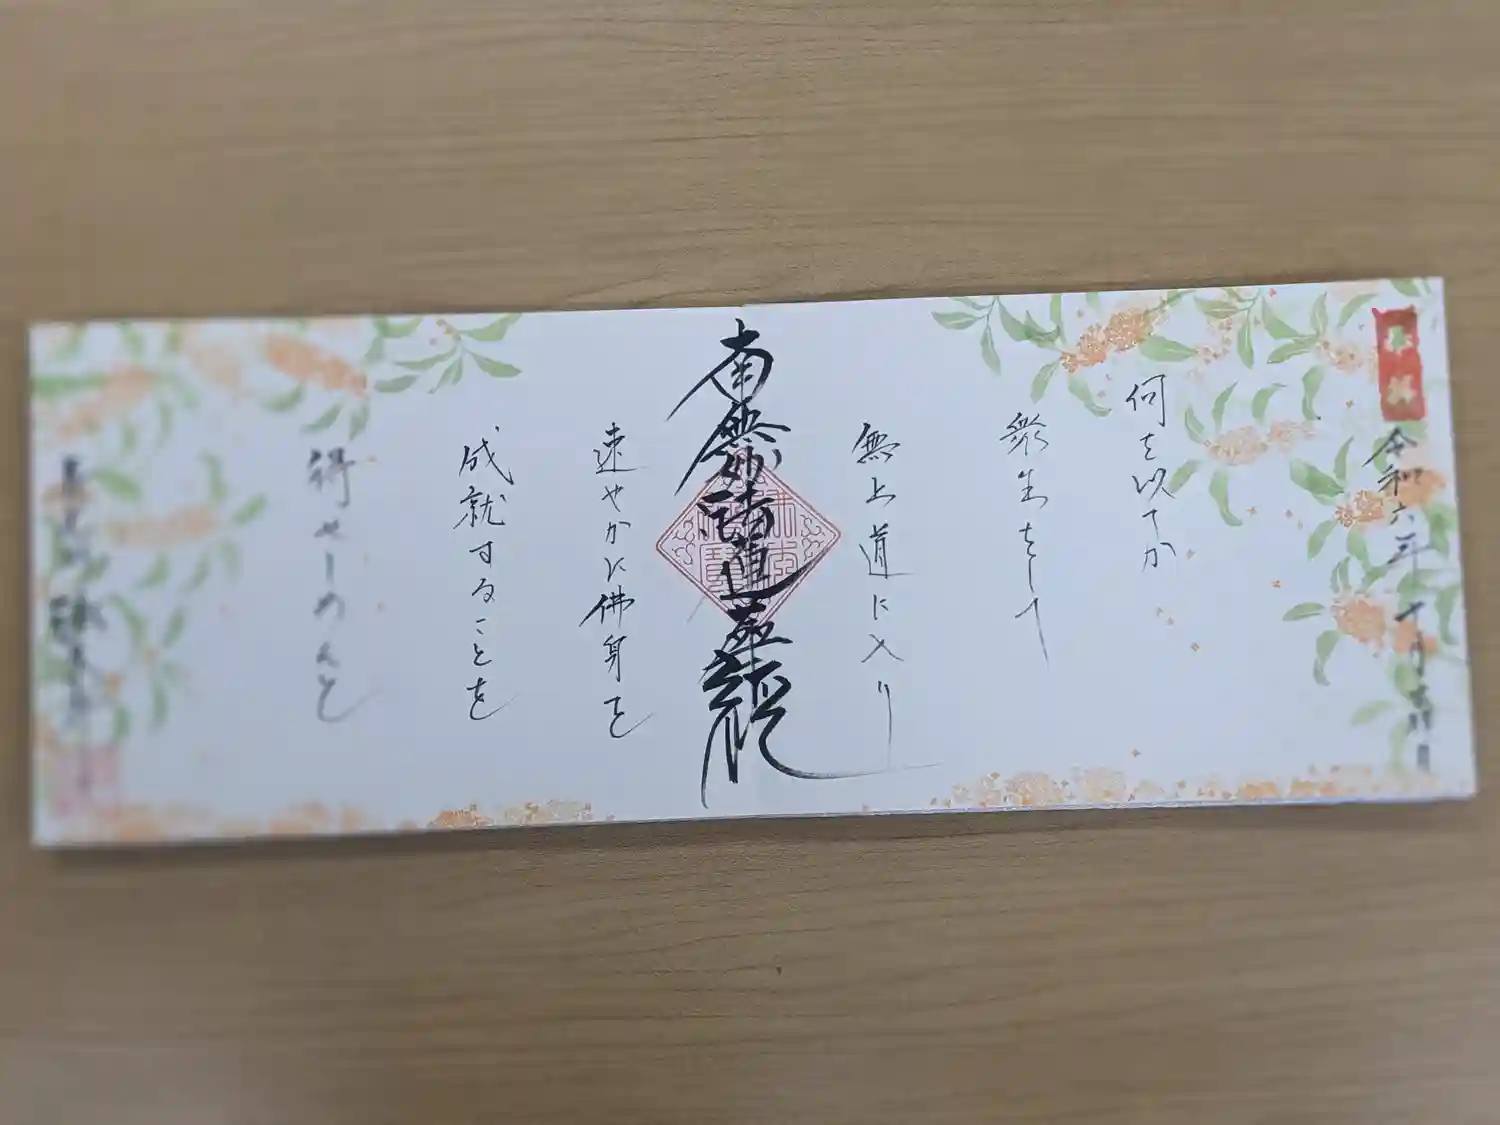 奉拝
令和六年 十月吉祥日
何を以てか
衆生をして
無上道に入り
南無妙法蓮華経
速やかに佛身を
成就することを
得せしめんと